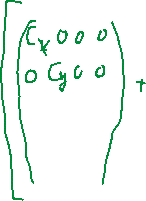 [ ( Cx 0 0 0
0 Cy 0 0 ) +